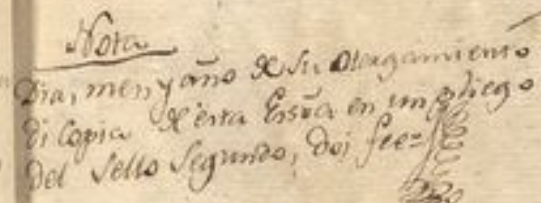 Nota
Dia, mes y año de su otorgamiento
di Copia de esta Essra en un pliego
del Sello Segundo, doi fee=